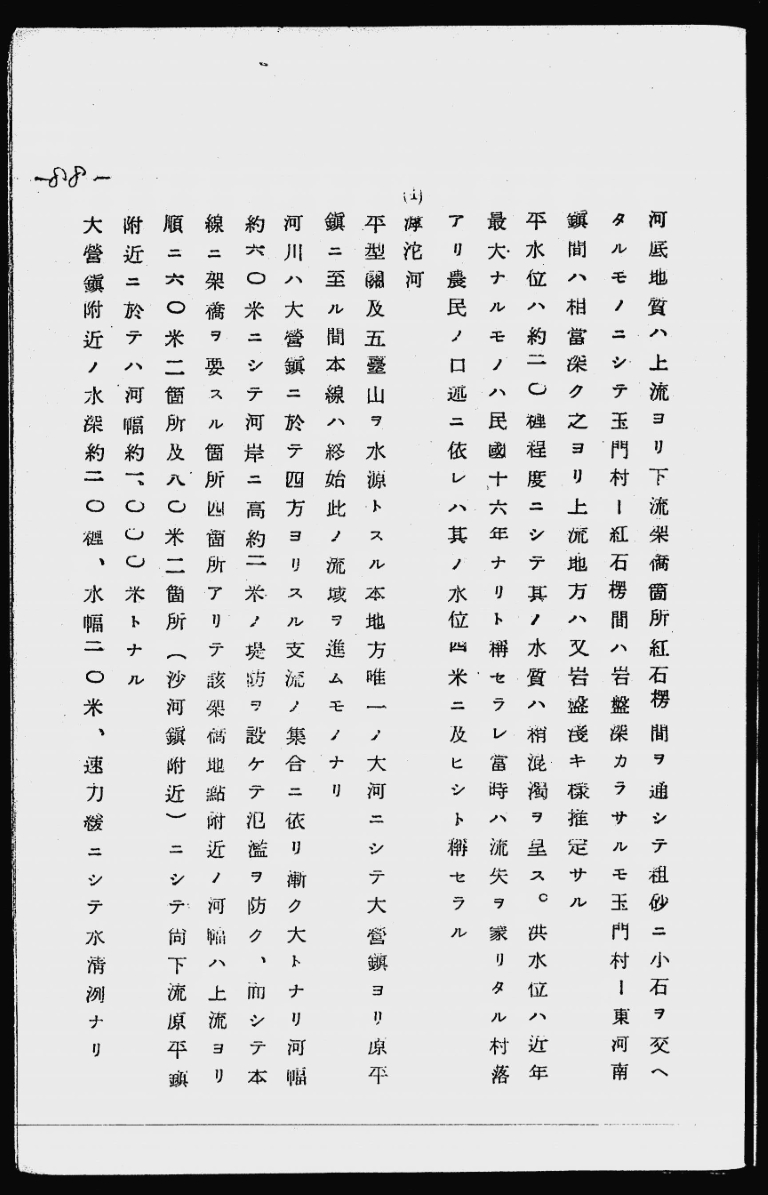 河底地質ハ上流ヨリ下流架橋箇所紅石楞間ヲ通シテ粗砂ニ小石ヲ交ヘ
タルモノニシテ玉門村ー紅石楞間ハ岩盤深カラサルモ玉門村ー東河南
鎭間ハ相當深ク之ヨリ上流地方ハ又岩盤淺キ樣推定サル
平水位ハ約二〇糎程度ニシテ其ノ水質ハ稍混濁ヲ呈ス。洪水位ハ近年
最大ナルモノハ民國十六年ナリト稱セラレ當時ハ流失ヲ蒙リタル村落
アリ農民ノ口述ニ依レハ其ノ水位四米ニ及ヒシト稱セラル
(1)滹沱河
平型關及五臺山ヲ水源トスル本地方唯一ノ大河ニシテ大營鎭ヨリ原平
鎭ニ至ル間本線ハ終始此ノ流域ヲ進ムモノナリ
河川ハ大營鎭ニ於テ四方ヨリスル支流ノ集合ニ依リ漸ク大トナリ河幅
約六〇米ニシテ河岸ニ高約二米ノ堤防ヲ設ケテ氾濫ヲ防ク、而シテ本
線ニ架橋ヲ要スル箇所四箇所アリテ該架橋地點附近ノ河幅ハ上流ヨリ
順ニ六〇米二箇所及八〇米二箇所(沙河鎭附近)ニシテ尙下流原平鎭
附近ニ於テハ河幅約一、〇〇〇米トナル
大營鎭附近ノ水深約二〇糎、水幅二〇米、速力緩ニシテ水淸洌ナリ
-88-